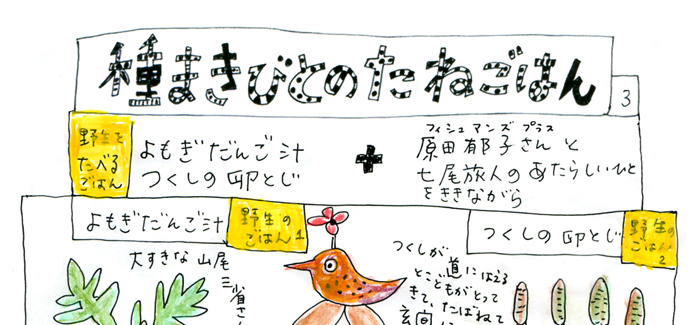 種まきびとのたねごはん
3
野生を
たべる
ごはん
よもぎだんご汁
つくしの卵とじ
+
フィシュマンズ プラス
原田郁子さんと
七尾旅人のあたらしいひと
をききながら
よもぎだんご汁
野生の
ごはん1
つくしの卵とじ
野生の
ごはん2
大すきな山尾
三省さん
つくしが道にはえる
とこどもがとって
きて、たばねて
玄関